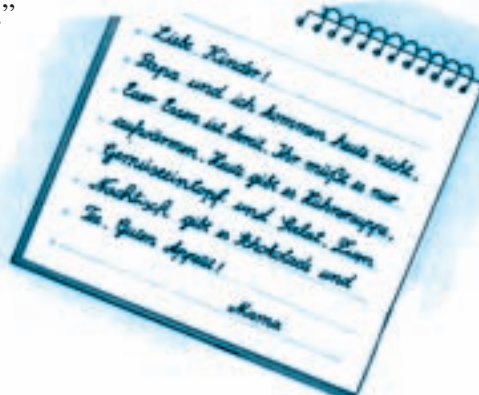 ”
Liebe Kinder!
Papa und ich kommen heute nicht.
Euer Essen ist bereit. Ihr müßt es nur
aufwärmen. Heute gibt es Hühnersuppe,
Gemüseeintopf und Salat. Zum
Nachtisch gibt es Schokolade und
Tee. Guten Appetit!
Mama